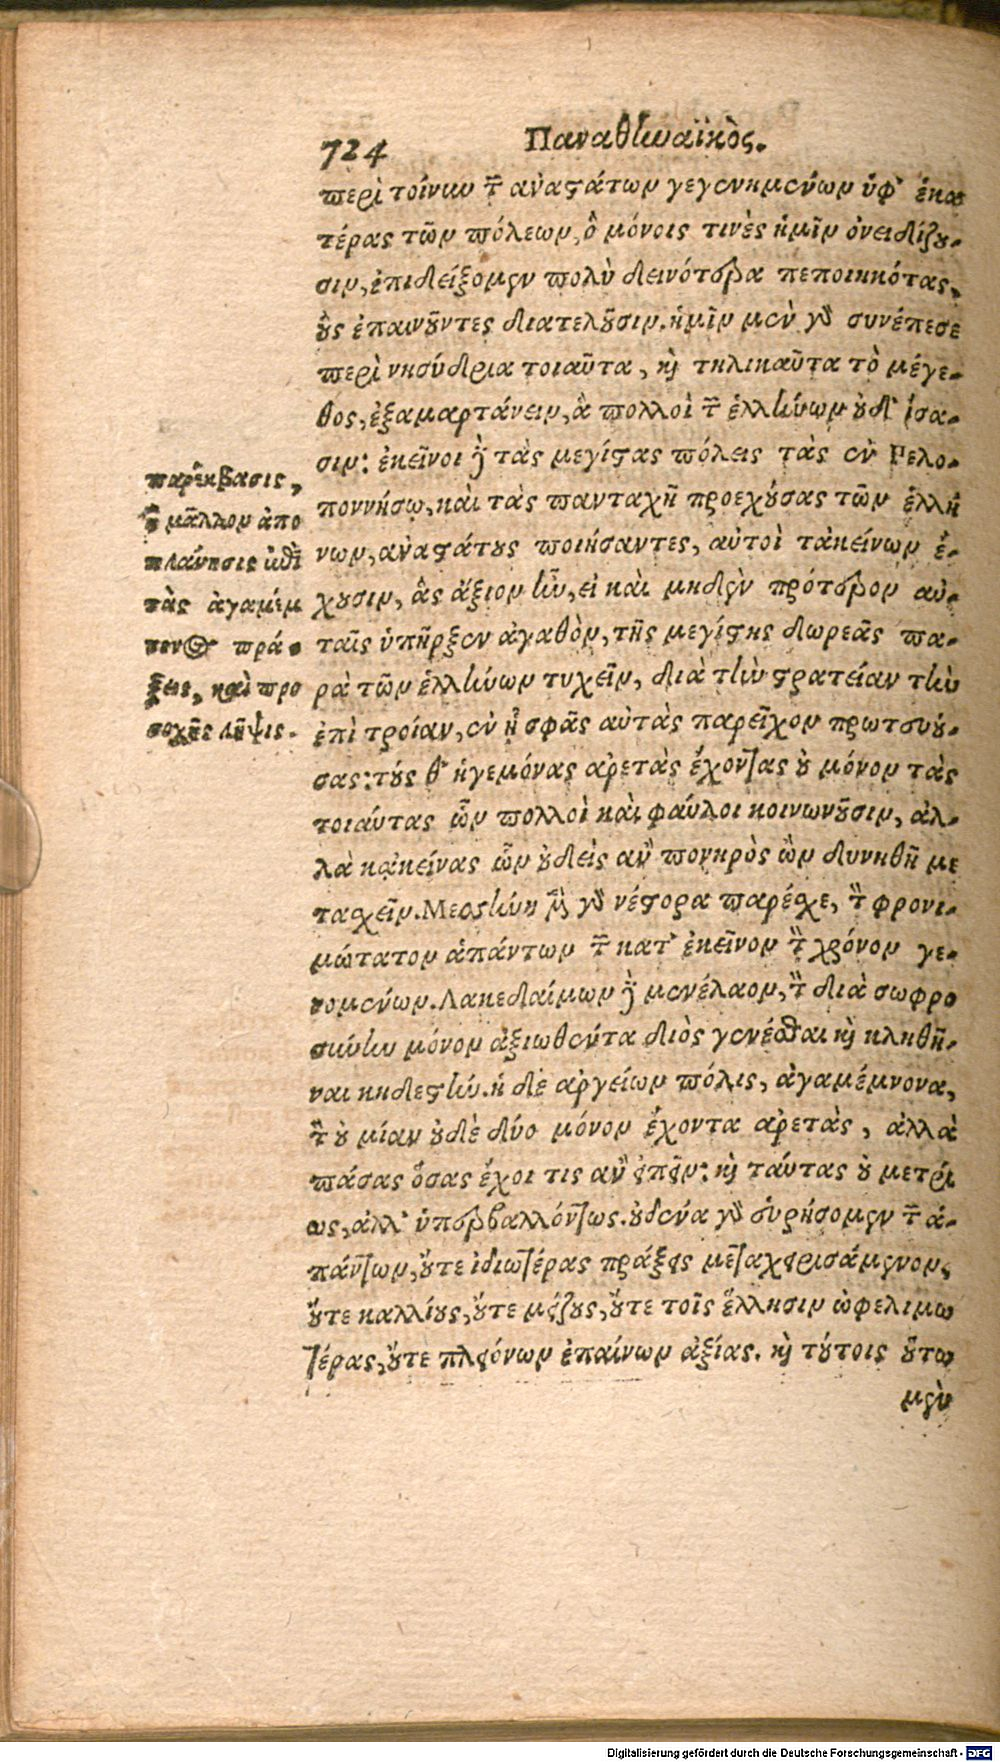 724 Παναθηναϊκὸς.
περὶ τοίνυν τῶν ἀναστάτων γεγενημένων ὑφ' ἑκα
τέρας τῶν πόλεων, ὃ μόνοις τινὲς ἡμῖν ὀνειδίζου-
σιν, ἐπιδείξομεν πολὺ δεινότερα πεποιηκότας,
οὓς ἐπαινοῦντες διατελοῦσιν. ἡμῖν μὲν γὰρ συνέπεσε
περὶ νησύδρια τοιαῦτα, καὶ τηλικαῦτα τὸ μέγε-
θος, ἐξαμαρτάνειν, ἃ πολλοὶ τῶν ἑλλήνων οὐδ' ἴσα-
σιν: ἐκεῖνοι δὲ τὰς μεγίστας πόλεις τὰς ἐν Πελο-
ποννήσῳ, καὶ τὰς πανταχῆ προεχούσας τῶν ἑλλή
νων, ἀναστάτους ποιήσαντες, αὐτοὶ τἀκείνων ἔ-
χουσιν, ἃς ἄξιον ἦν, εἰ καὶ μηδὲν πρότερον αὐ-
ταῖς ὑπῆρξεν ἀγαθὸν, τῆς μεγίστης δωρεᾶς πα-
ρὰ τῶν ἑλλήνων τυχεῖν, διὰ τὴν στρατείαν τὴν
ἐπὶ τροίαν, ἐν ᾗ σφᾶς αὐτὰς παρεῖχον πρωτευού-
σας: τούς θ' ἡγεμόνας ἀρετὰς ἔχοντας οὐ μόνον τὰς
τοιαύτας ὧν πολλοὶ καὶ φαύλοι κοινωνοῦσιν, ἀλ-
λὰ κακείνας ὧν οὐδεὶς ἂν πονηρὸς ὢν δυνηθῆ με
τασχεῖν. Μεσσήνη μὲν γὰρ νέστορα παρέσχε, τὸν φρονι-
μώτατον ἁπάντων τῶν κατ' ἐκεῖνον τὸν χρόνον γε-
νομένων. Λακεδαίμων δὲ μενέλαον, τὸν διὰ σωφρο
σύνην μόνον ἀξιωθέντα διὸς γενέσθαι καὶ κληθῆ-
ναι κηδεστήν. ἡ δὲ ἀργείων πόλις, ἀγαμέμνονα,
τὸν οὐ μίαν οὐδὲ δύο μόνον ἔχοντα ἀρετὰς, ἀλλὰ
πάσας ὅσας ἔχοι τις ἂν εἰπεῖν: καὶ ταύτας οὐ μετρί
ως, ἀλλ' ὑπερβαλλόντως. οὐδένα γὰρ εὑρήσομεν τῶν ἁ-
πάντων, οὔτε ἰδιωτέρας πράξεις μεταχειρισάμενον,
οὔτε καλλίους, οὔτε μείζους, οὔτε τοῖς ἕλλησιν ὠφελιμω
τέρας, οὔτε πλειόνων ἐπαίνων ἀξίας. καὶ τούτοις οὕτω
μὲν
παρέκβασις,
ἢ μᾶλλον ἀπο
πλάνησις ἐπὶ
τὰς ἀγαμέμ
νονος πρά-
ξεις, καὶ προ
σοχῆς λῆψις.
Digitalisierung gefördert durch die Deutsche Forschungsgemeinschaft - DFG